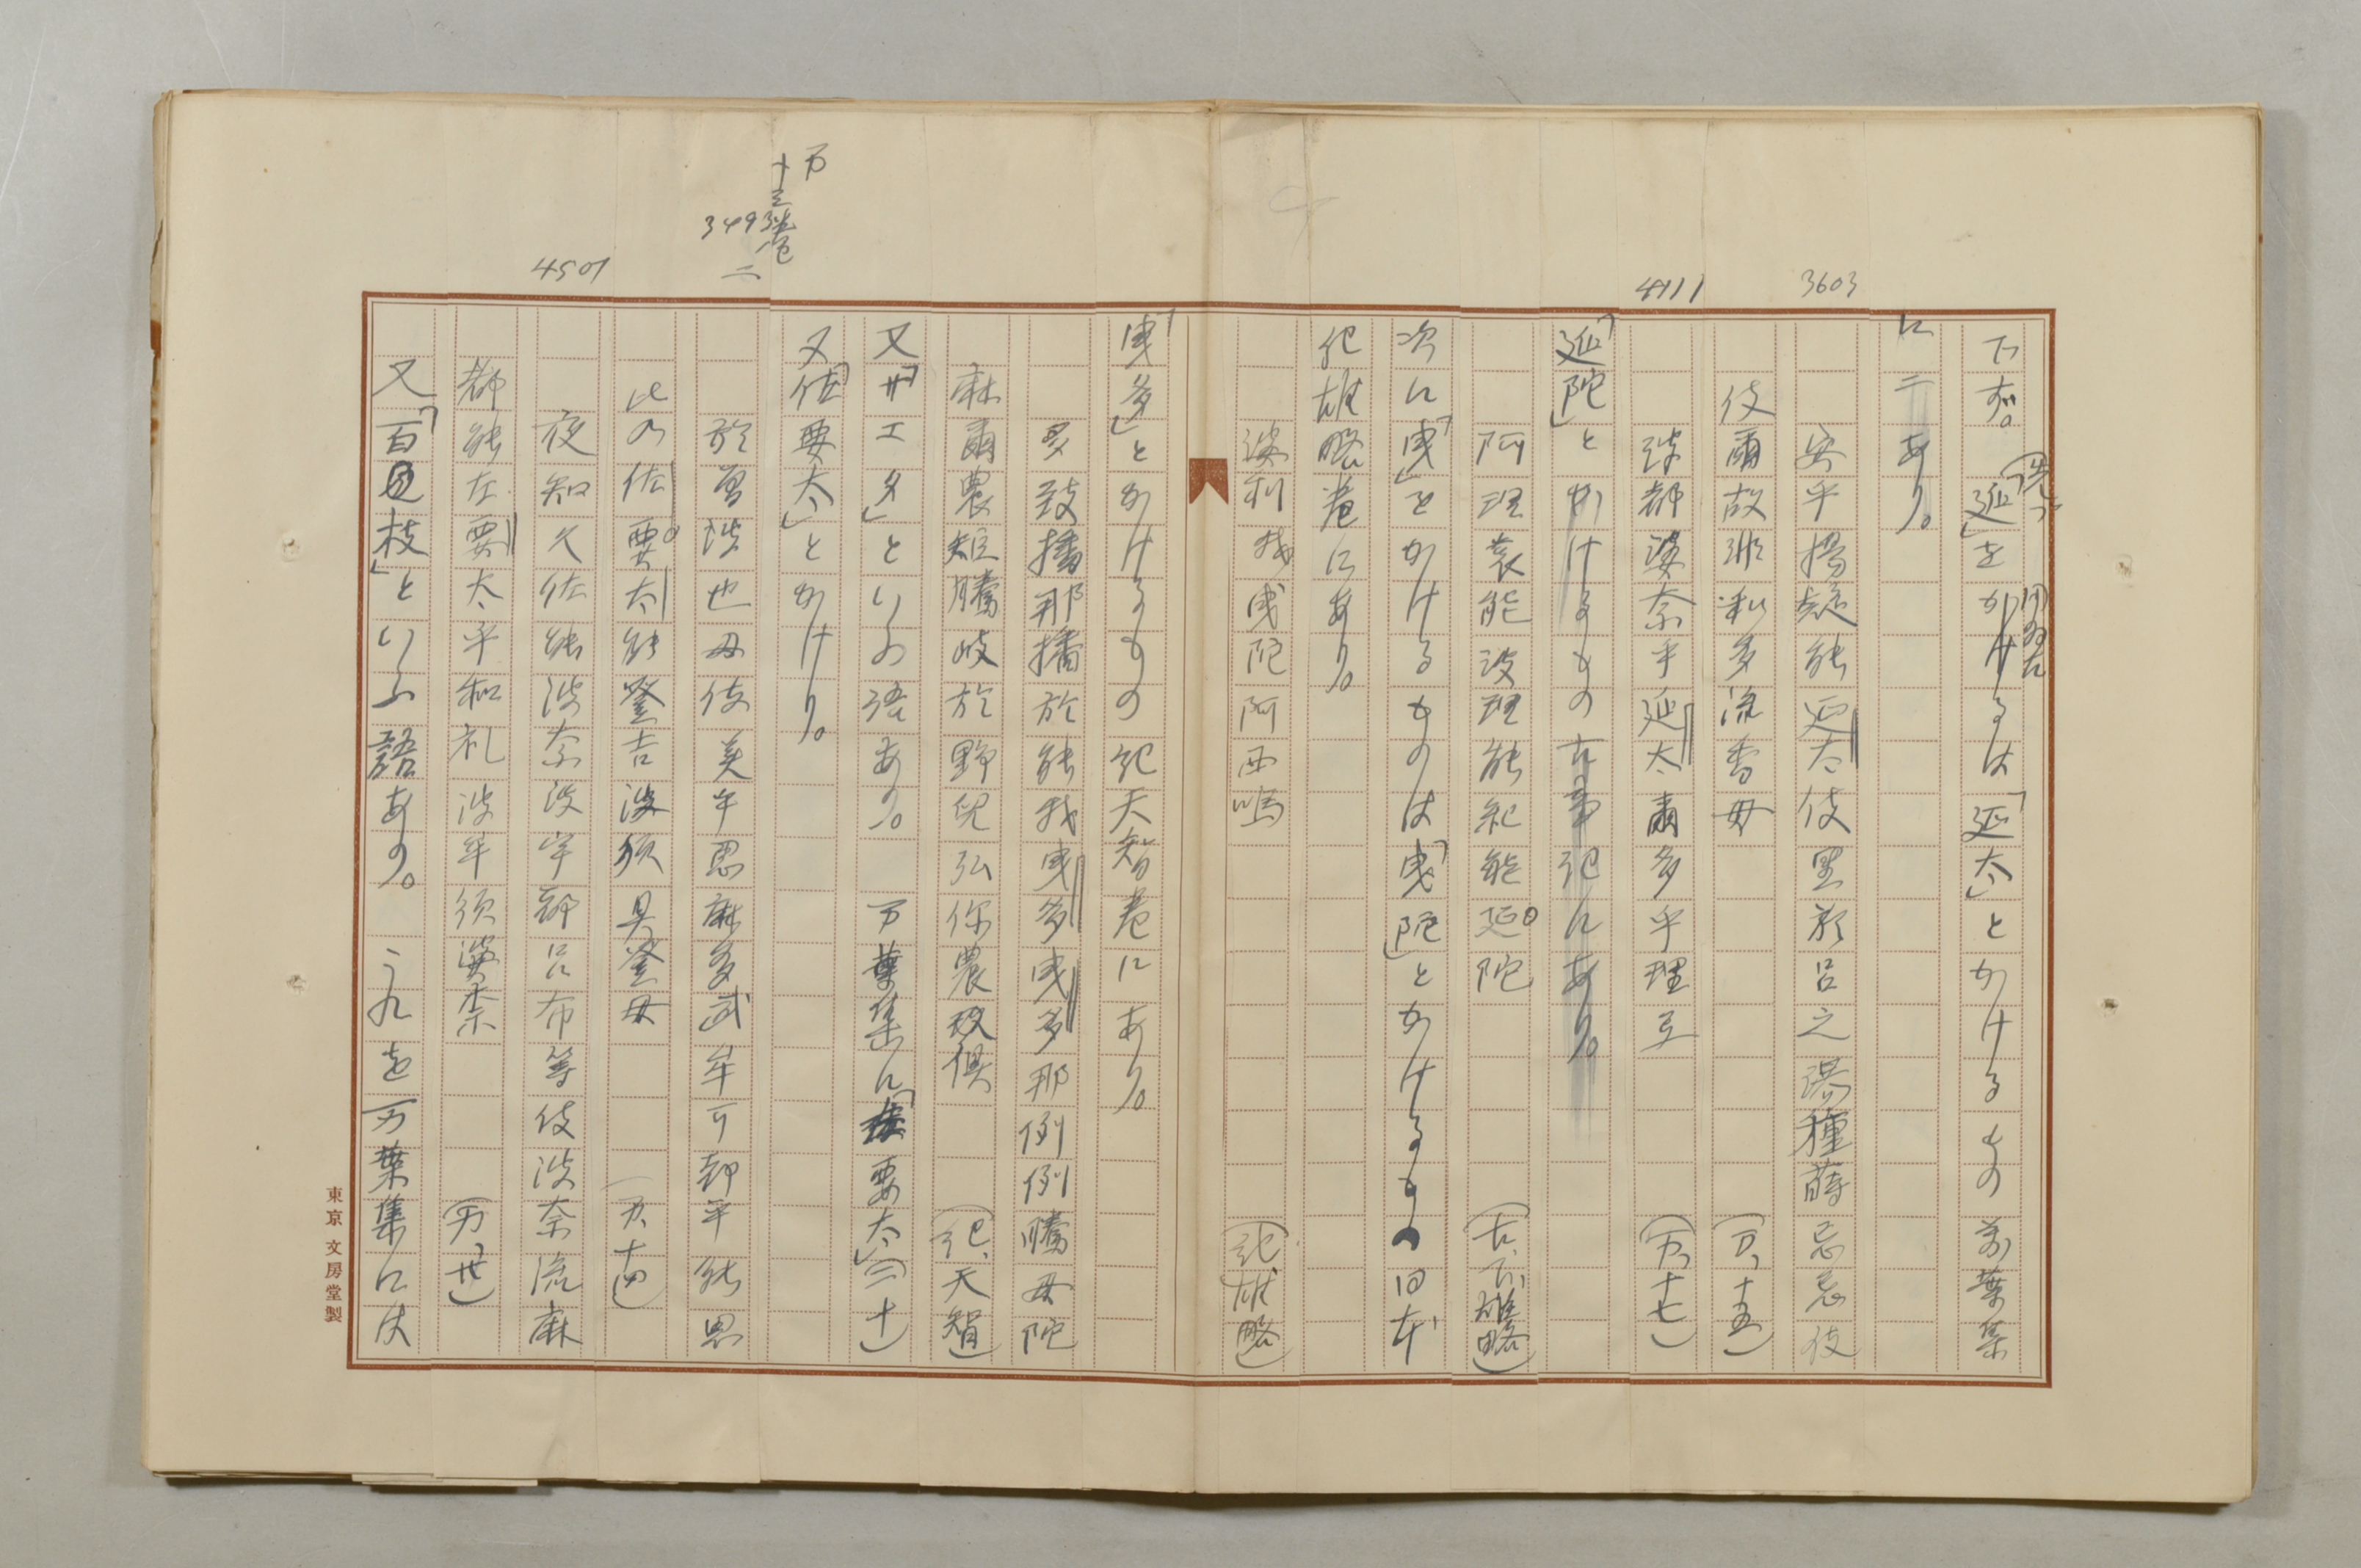 3603
4111
下す。「延」をかけるは「延太」とかけるもの萬葉集
に二あり。
安乎楊疑能延太伎里於呂之湯種蒔忌忌伎
伎爾故非和多流香母
波都婆奈乎延太爾多乎理弖
(万、十五)
(万、十七)
「延陀」とかけるもの古事記にあり。
阿理袁能波理能紀能延陀
(古、下、雄略)
次に「曳」をかけるものは「曳陀」とかけるもの日本
紀雄略巻にあり。
婆利我曳陀阿西嗚
(紀、雄略)
「曳多」とかけるもの紀天智巻にあり。
多致播那播於能我曳多曳多那例例騰母陀
麻爾農矩騰岐於野児弘你農倶
(紀、天智)
又「サエダ」といふ語あり。万葉集に
要太」(二十)
又「佐要太」とかけり。
万
十三巻
3493
二
於曽波也母伎美乎思麻多武牟可都乎能思
比乃佐要太能登吉波須具登母
(万、十四)
4501
夜知久佐能波奈波宇都呂布等伎波奈流麻
都能左要太乎和礼波牟須婆奈
(万、廿)
又「百枝」といふ語あり。これを万葉集には
東京文房堂製